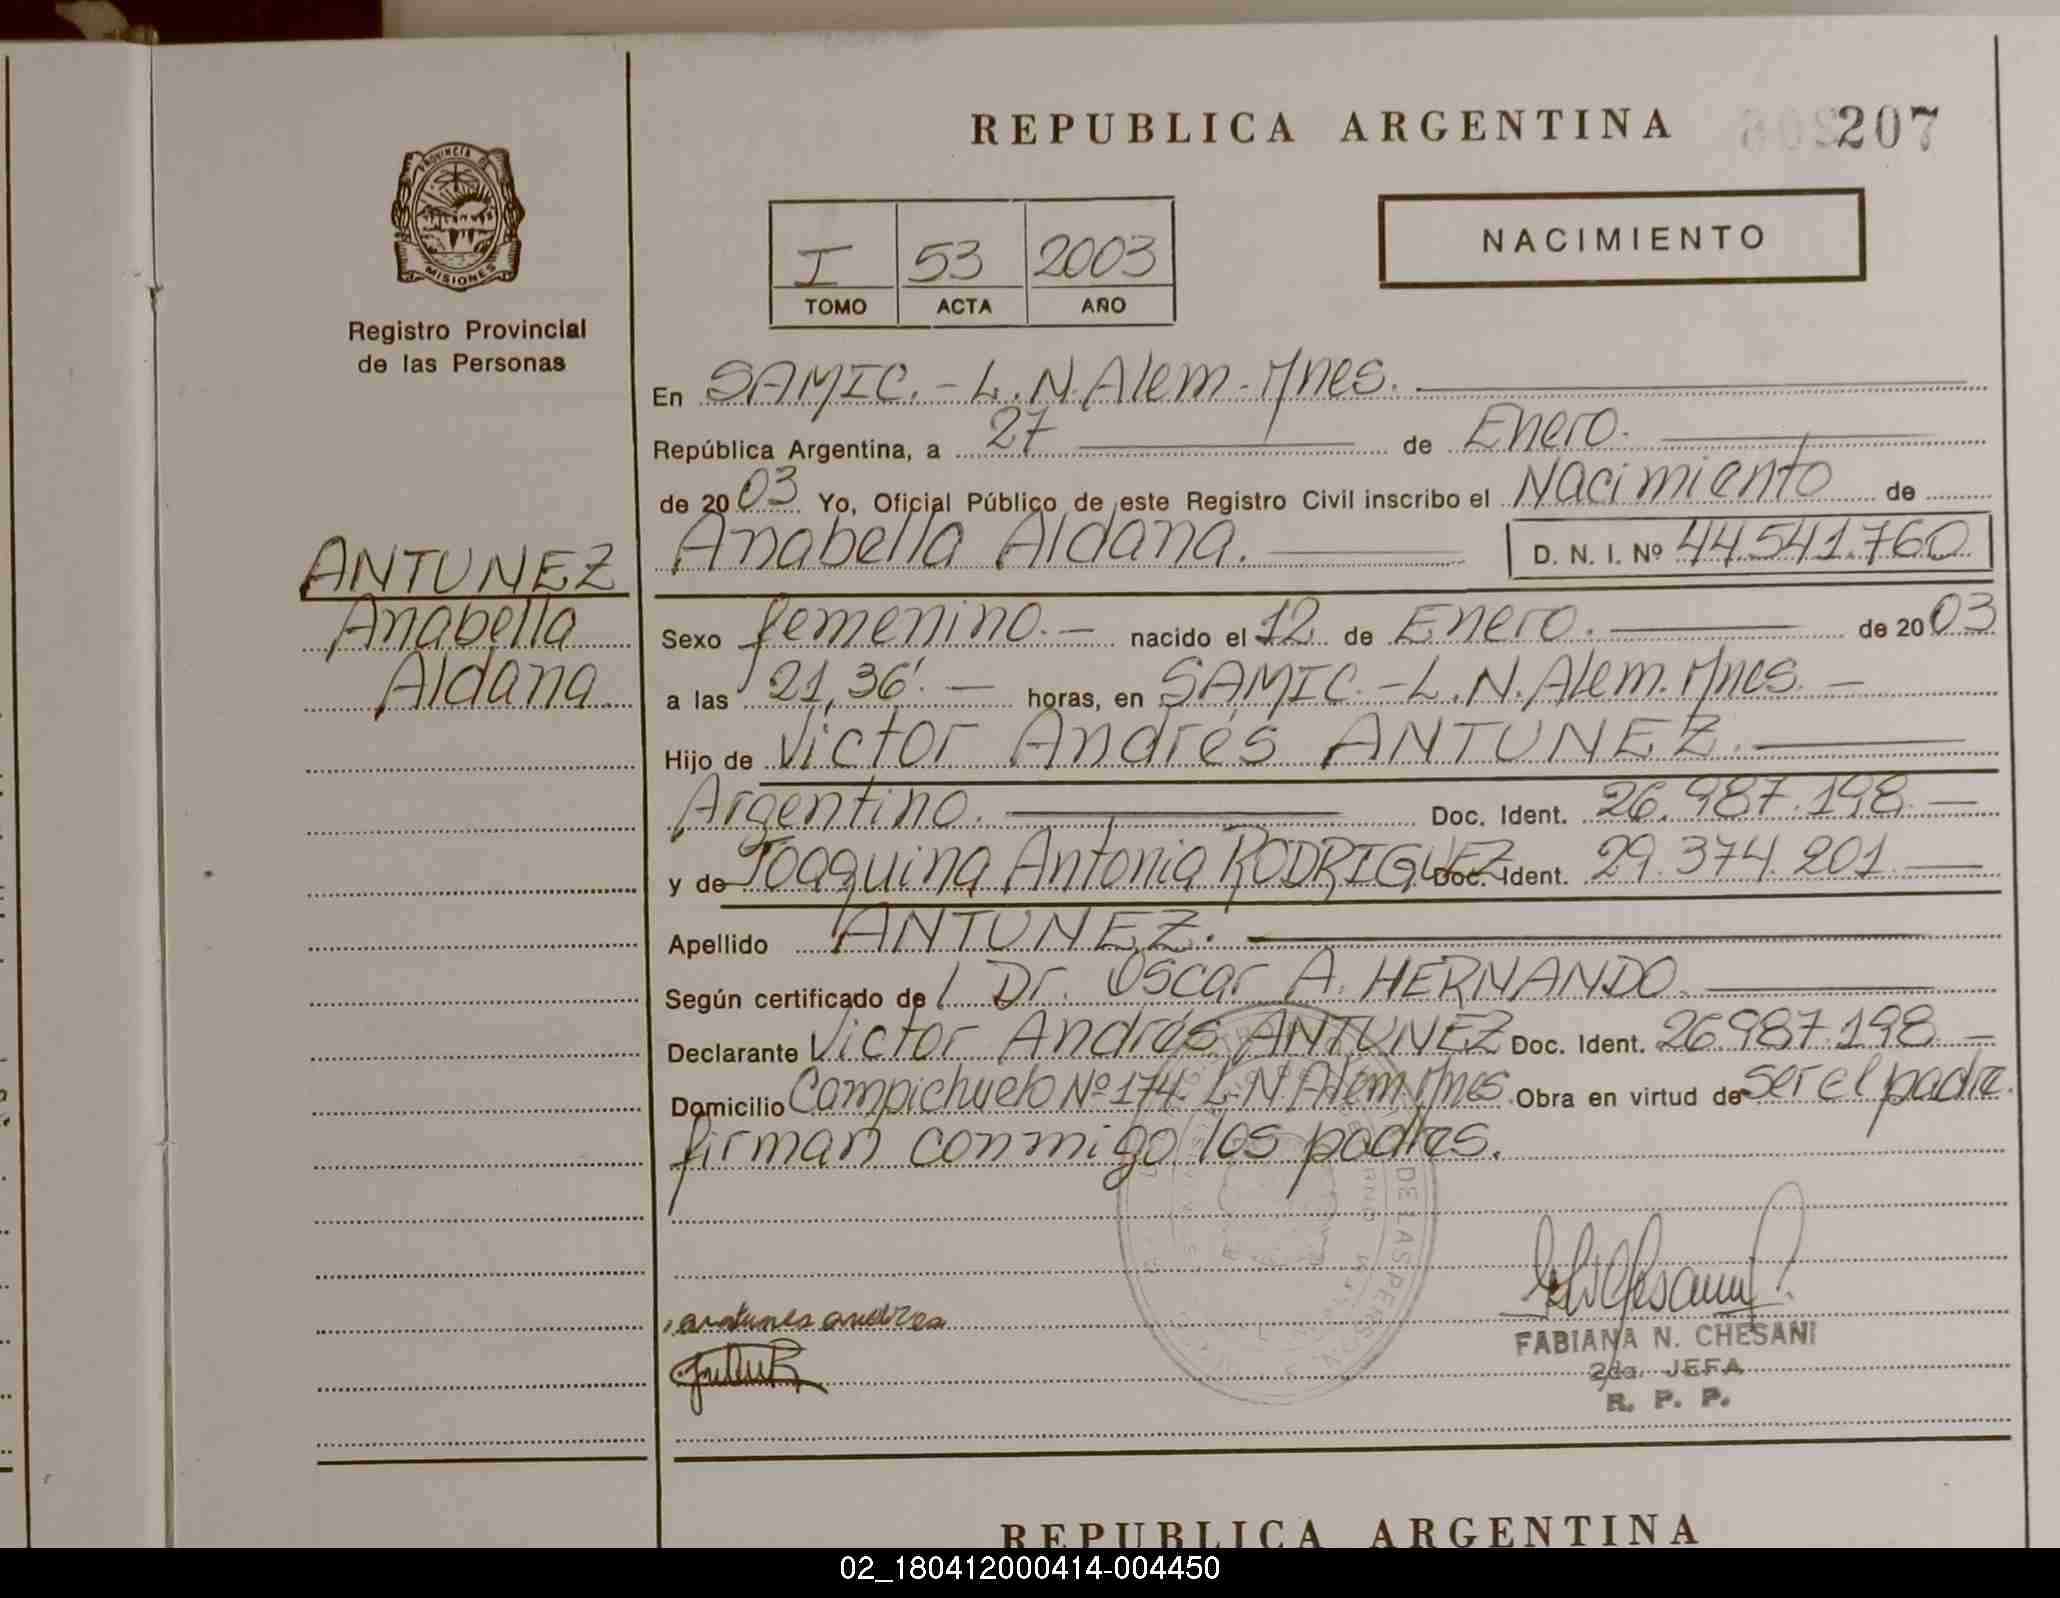 REPUBLICA ARGENTINA 207
PROVINCIA DE
MISIONES
Registro Provincial
de las Personas
I 53 2003
TOMO ACTA AÑO
NACIMIENTO
En SAMIC.-L.N.Alem-Mnes.
República Argentina, a 27 de Enero.
de 2003 Yo, Oficial Público de este Registro Civil inscribo el Nacimiento de
Anabella Aldana. D. N. I. Nº 44.541.760
ANTUNEZ
Anabella
Aldana.
Sexo femenino.- nacido el 12 de Enero. de 2003
a las 21,36'.- horas, en SAMIC.-L.N.Alem.Mnes.-
Hijo de Victor Andrés ANTUNEZ.
Argentino. Doc. Ident. 26.987.198.-
y de Joaquina Antonia RODRIGUEZ Doc. Ident. 29.374.201.-
Apellido ANTUNEZ.
Según certificado de Dr. Oscar A. HERNANDO.
Declarante Victor Andrés ANTUNEZ Doc. Ident. 26.987.198.-
Domicilio Campichuelo Nº 174. L.N.Alem Mnes. Obra en virtud de ser el padre.
firman conmigo los padres.
DE LAS PERSON
antunes andres
FABIANA N. CHESANI
2da. JEFA
R. P. P.
REPUBLICA ARGENTINA
02_180412000414-004450